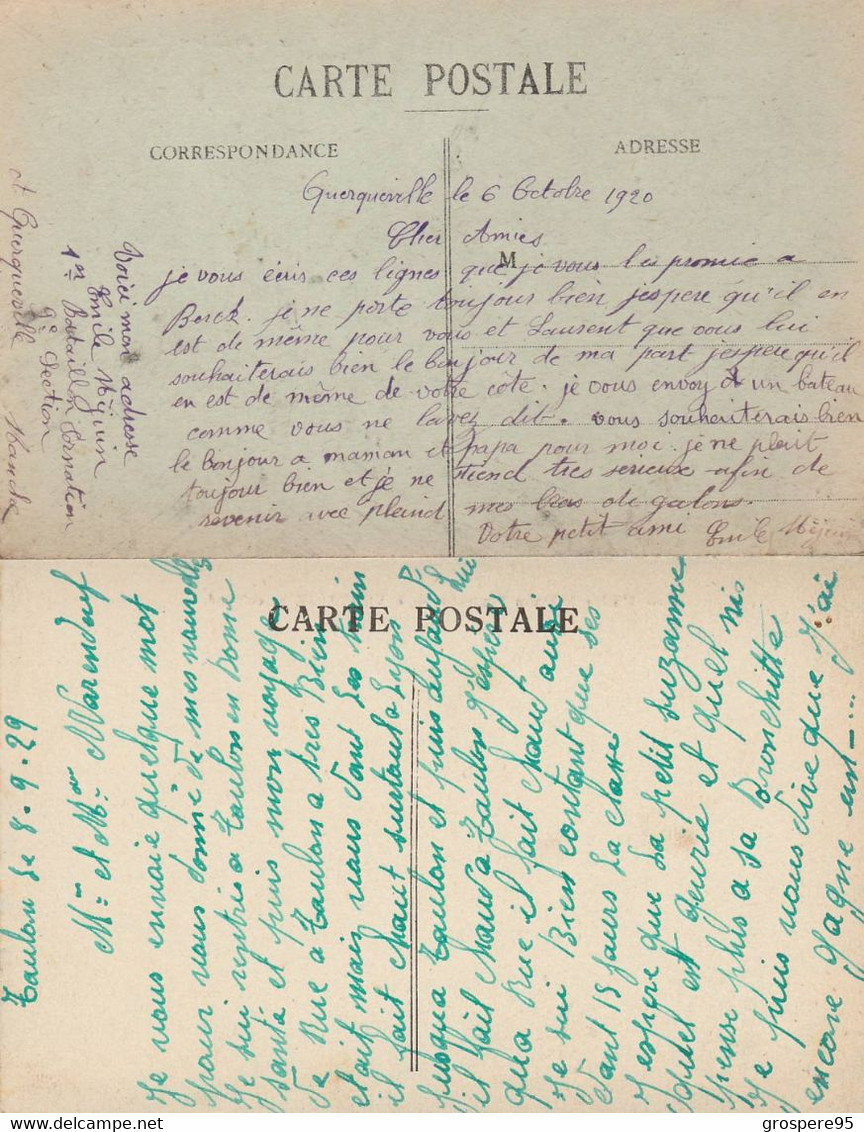 CARTE POSTALE
CORRESPONDANCE
ADRESSE
M
Querqueville le 6 Octobre 1920
Cher Amies
je vous écris ces lignes que je vous lé promie a
Berck. je ne porte toujour bien jespere qu'il en
est de même pour vous et Laurent que vous lui
souhaiterais bien le bonjour de ma part jespere qu'il
en est de même de votre côte. je vous envoy un bateau
comme vous ne lavez dit. vous souhaiterais bien
le bonjour a maman et papa pour moi. je ne plait
toujour bien et je ne tiend tres serieux afin de
revenir avec pleind mes bras de galons.
Votre petit ami Emile
Voici mon adresse
Emile
1er Bataillon
9e Section
Querqueville Manche
CARTE POSTALE
Toulon le 8.9.29
Mr et Mme Warendorf
Je vous envoie quelque mot
pour vous donné de mes nouvelle
Je sui rentré a Toulon en bonne
santé et puis mon voyage
de Rue a Toulon a tres Bien
etait mais vous dans les train
il fait chaut surtout a Lyon
jusqua Toulon et puis aujourd'hui
il fait chaud a Toulon j'espere
qua Rue il fait chaud aussi
Je sui Bien contant que ses
dant 15 jours la classe
J'espere que la petit Suzanne
quel est guerie et quel nis
pense plus a sa Bronchitte
Je puis vous dire que j'ai
encore gagne
grospere95